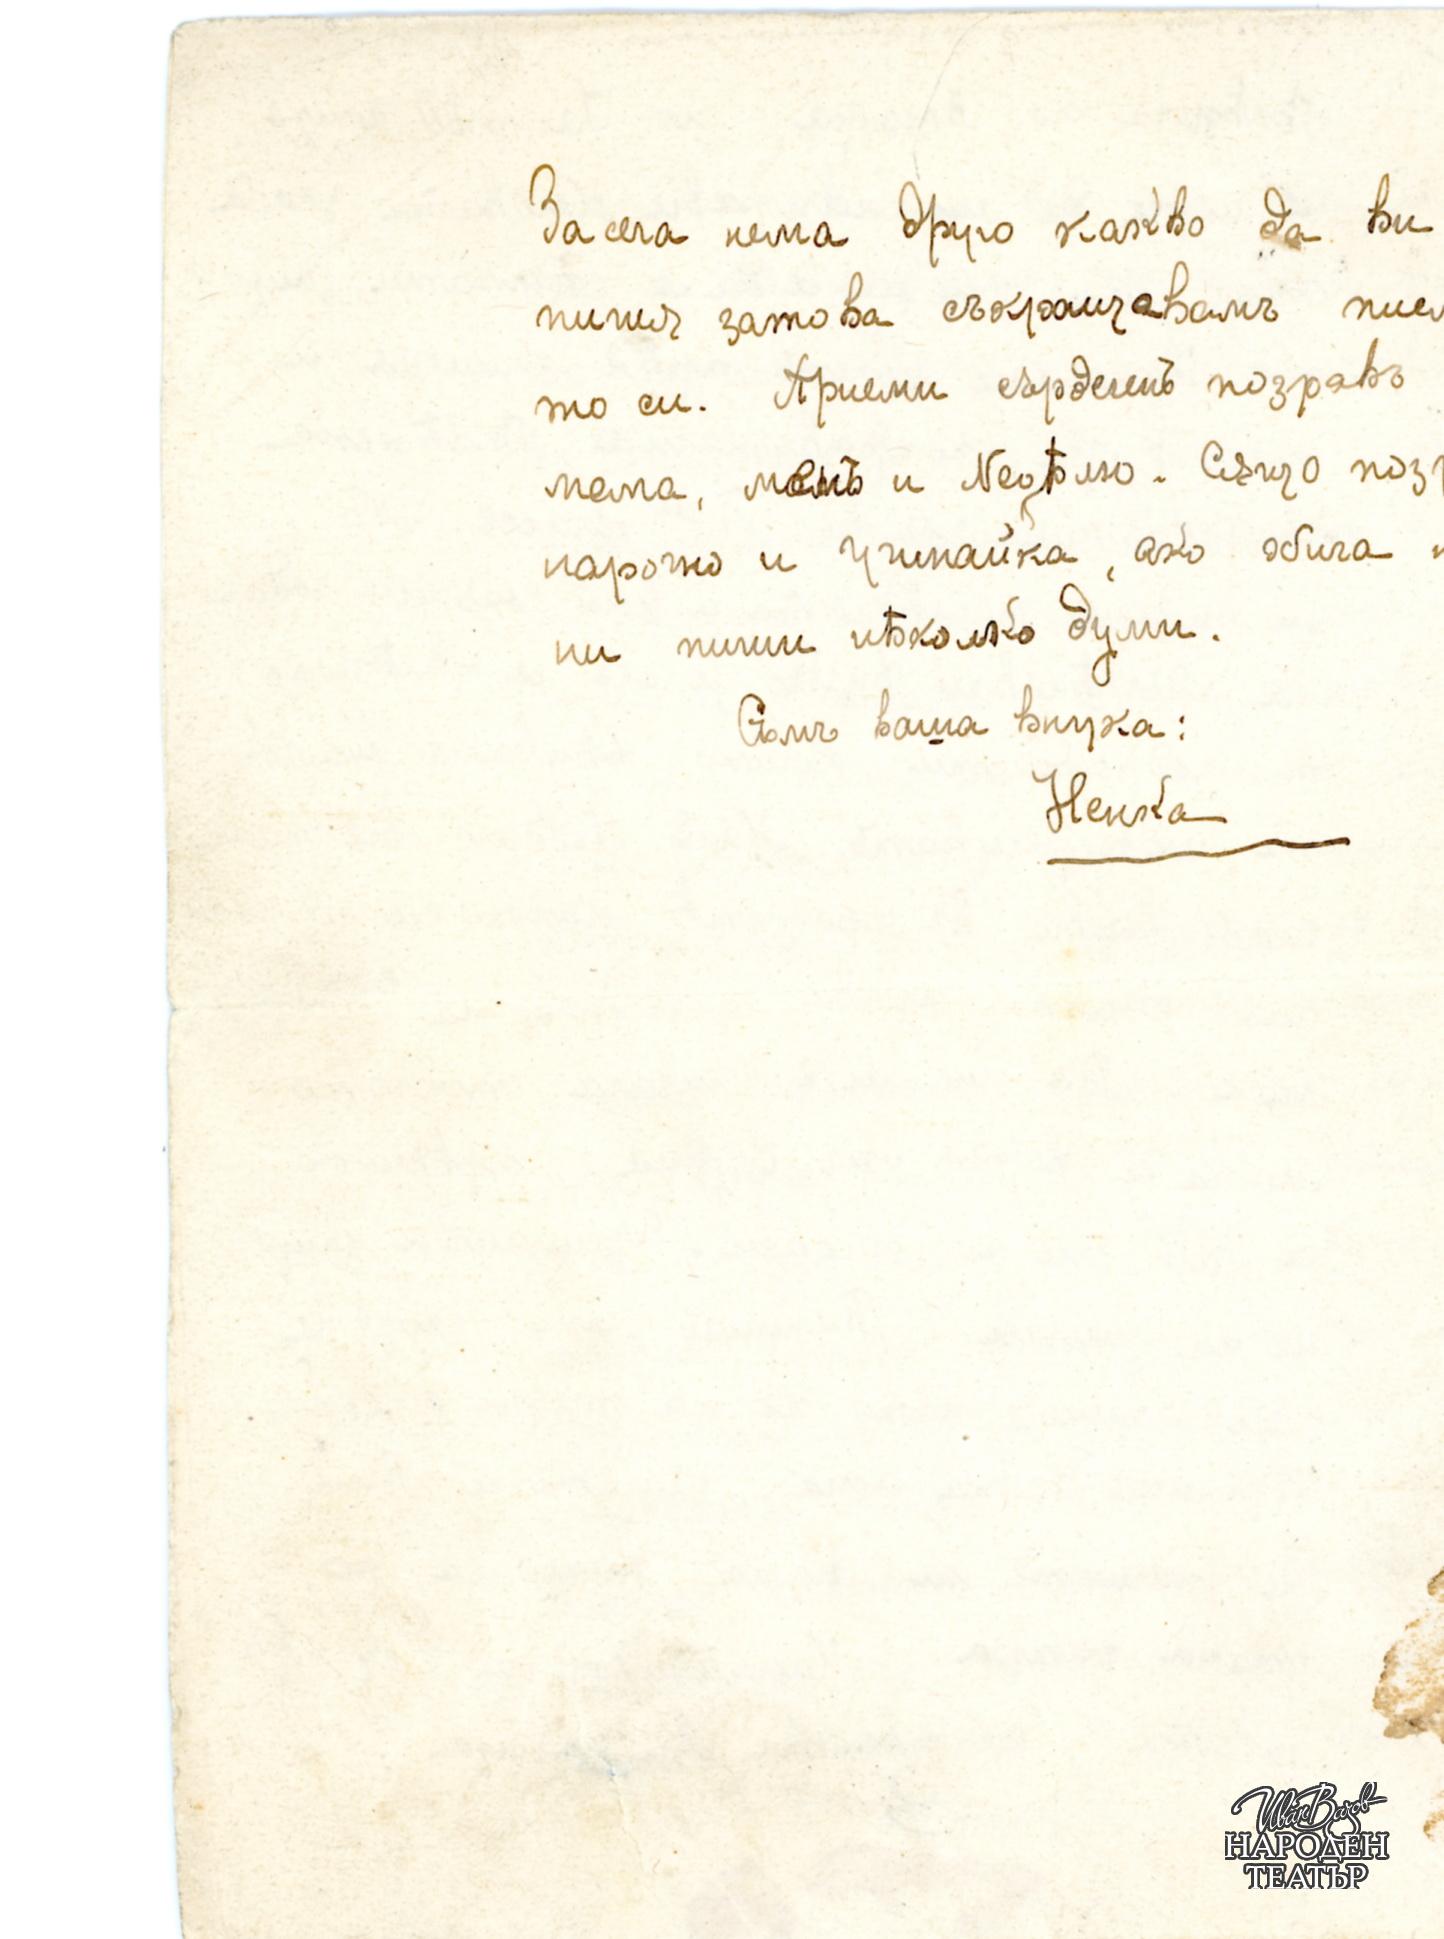 За сега нема друго какво да ви
пишѫ затова съкращавамъ писм
то си. Приеми сърдеченъ поздравъ
мама, и Недѣлю. Също позд
нарочно и учинайка, ако обича
ни пиши нѣколко думи.
Съмъ ваша внука:
Ненка
Иван Вазов
НАРОДЕН
ТЕАТЪР